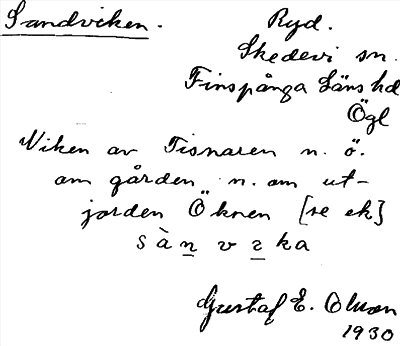 Sandviken.
Ryd.
Skedevi sn.
Finspånga Läns hd
Ögl
Viken av Tisnaren n. ö.
om gården n. om ut-
jorden Öknen [se ek]
sàn vɩka
Gustaf E. Olson
1930